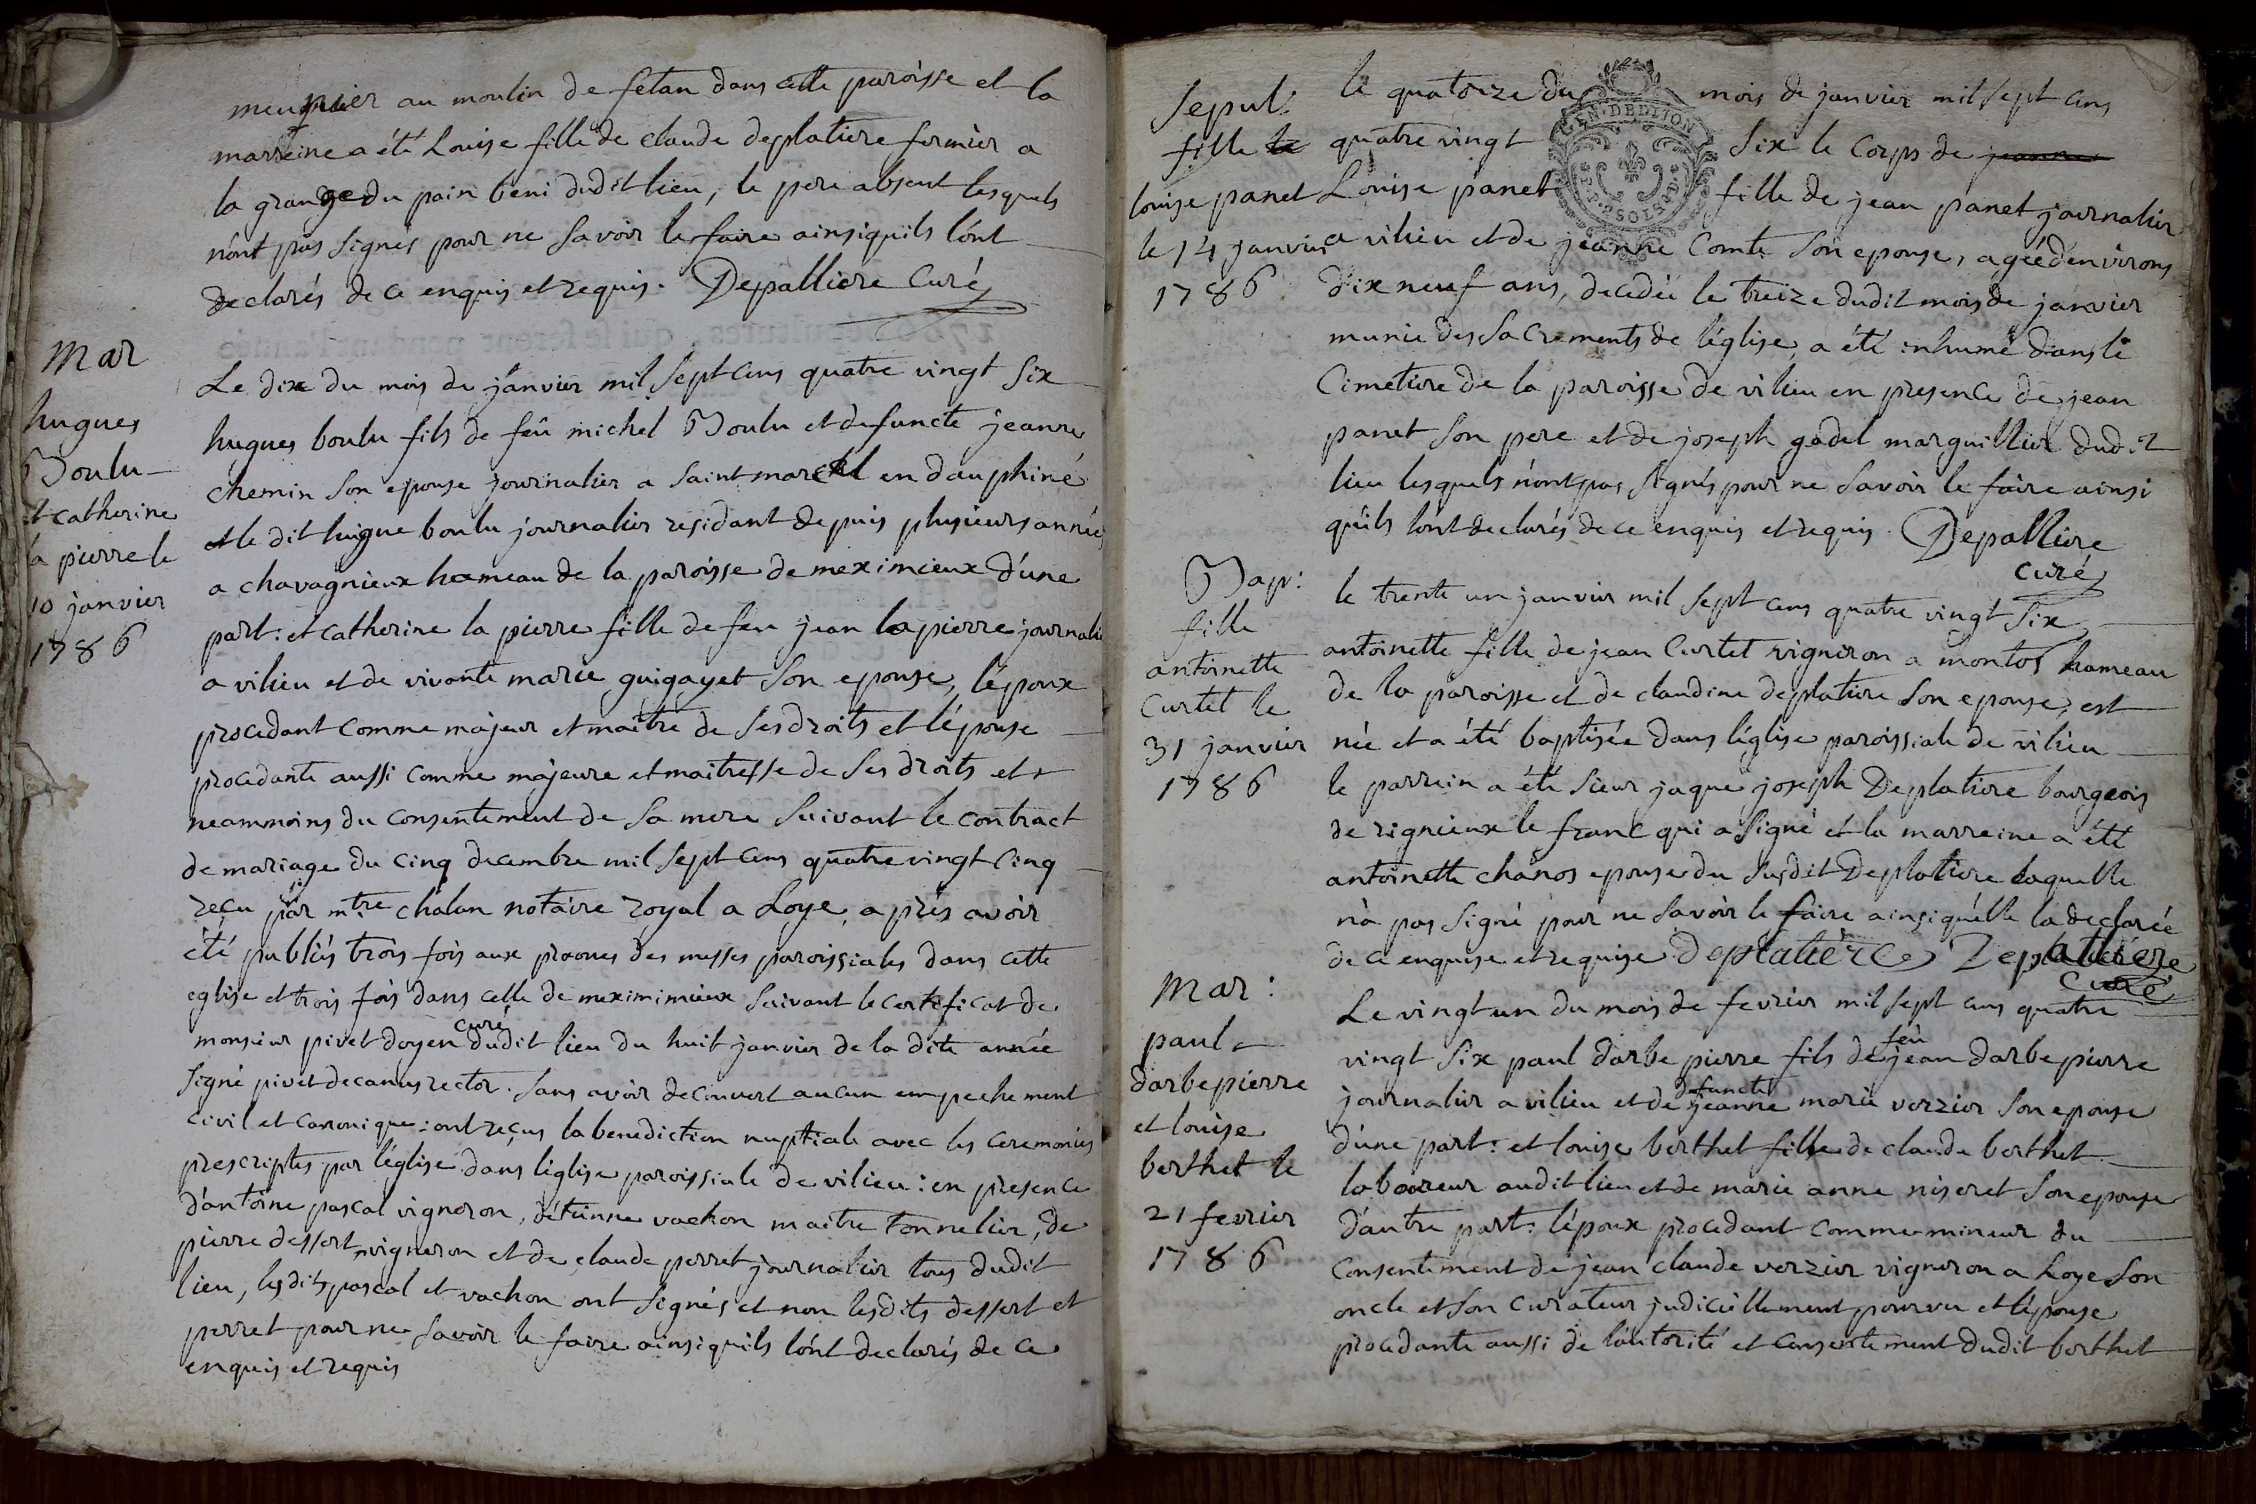 meunier au moulin de fétan dans cette paroisse et la
marreine a été Louise fille de claude deplatiere fermier a
la grange du pain beni dudit lieu, le pere absent lesquels
n'ont pas signés pour ne savoir le faire ainsiquils lónt
declarés de ce enquis et requis. Depalliere Curé
Mar
hugues
Boulu
et catherine
la pierre le
10 janvier
1786
Le dix du mois de janvier mil sept cens quatre vingt six
hugues boulu fils de feû michel Boulu et defuncte jeanne
chemin son epouse journalier a saint marcel en dauphiné
et le dit hugue boulu journalier residant depuis plusieurs années
a chavagnieux hameau de la paroisse de meximieux d'une
part: et catherine la pierre fille de feu jean lapierre journalier
a vilieu et de vivante marie guigayet son epouse, lépoux
procedant comme majeur et maitre de ses droits et lépouse
procedante aussi comme majeure et maitresse de ses droits et
neammoins du consentement de sa mere suivant le contract
de mariage du cinq decembre mil sept cens quatre vingt cinq
reçu par mtre chalan notaire royal a Loye, a prés avoir
été publiés trois fois aux prones des messes paroissiales dans cette
eglise et trois fois dans celle de meximimieux suivant le certificat de
monsieur pivet doyen curé dudit lieu du huit janvier de la dite année
signé pivet decanus rector. sans avoir decouvert aucun empechement
civil et canonique: ont reçus la benediction nuptiale avec les ceremonies
prescriptes par léglise dans léglise paroissiale de vilieu: en presence
dántoine pascal vigneron, détienne vachon maitre tonnelier, de
pierre dessert vigneron et de claude perret journalier tous dudit
lieu, lesdits pascal et vachon ont signés et non lesdits dessert et
perret pour ne savoir le faire ainsiquils lónt declarés de ce
enquis et requis
Sepul:
fille
louise panet
le 14 janvier
1786
le quatorze du mois de janvier mil sept cens
quatre vingt six le corps de jeanne
Louise panet fille de jean panet journalier
a vilieu et de jeanne Comte son epouse, agée d'environs
dix neuf ans, decedée le treize dudit mois de janvier
munie des sacrements de léglise, a été inhumé dans le
Cimetiere de la paroisse de vilieu en presence de jean
panet son pere et de joseph gadel marguillier dudit
lieu lesquels n'ont pas signés pour ne savoir le faire ainsi
quils lónt declarés de ce enquis et requis. Depalliere
curé
Bap:
fille
antoinette
Curtet le
31 janvier
1786
le trente un janvier mil sept cens quatre vingt six
antoinette fille de jean Curtet vigneron a montos hameau
de la paroisse et de claudine deplatiere son epouse, est
née et a été baptisée dans léglise paroissiale de vilieu
le parrein a été sieur jaque joseph Deplatiere bourgeois
de rignieux le franc qui a signé et la marreine a été
antoinette chânos epouse du susdit Deplatiere laquelle
n'a pas signé pour ne savoir le faire ainsiquélle la declarée
de ce enquise et requise Deplatiére Depalliere
Curé
Mar:
paul
darbepierre
et louise
berthet le
21 fevrier
1786
Le vingt un du mois de fevrier mil sept cens quatre
vingt six paul darbe pierre fils de feû jean darbepierre
journalier a vilieu et de defuncte jeanne marie verzier son epouse
d'une part: et louise berthet fille de claude berthet
laboureur audit lieu et de marie anne niseret son epouse
dáutre part: lépoux procedant comme mineur du
consentement de jean claude verzier vigneron a Loye son
oncle et son curateur judiciellement pourvu et lépouse
procedante aussi de láutorité et consentement dudit berthet